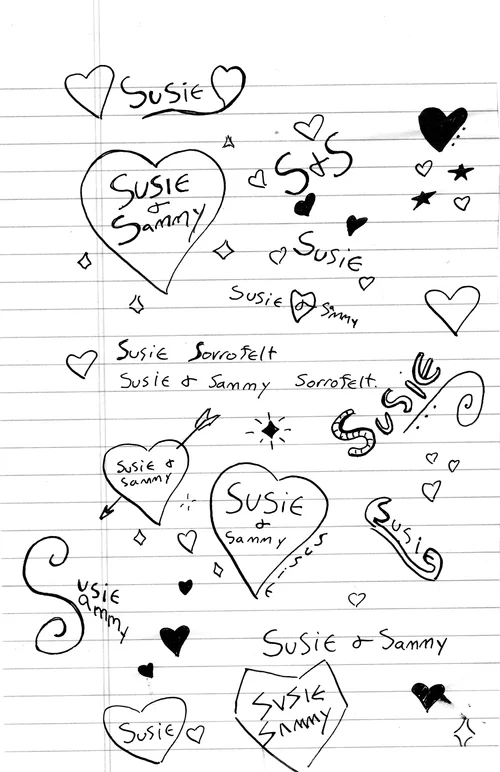 SusiE
S & S
SusiE
&
Sammy
SusiE
SusiE & Sammy
SusiE Sorrofelt
SusiE & Sammy Sorrofelt.
SusiE
SusiE &
Sammy
SusiE
&
Sammy
SusiE
SusiE
Susie
ammy
SusiE & Sammy
SuSIE
SAmmy
SusiE